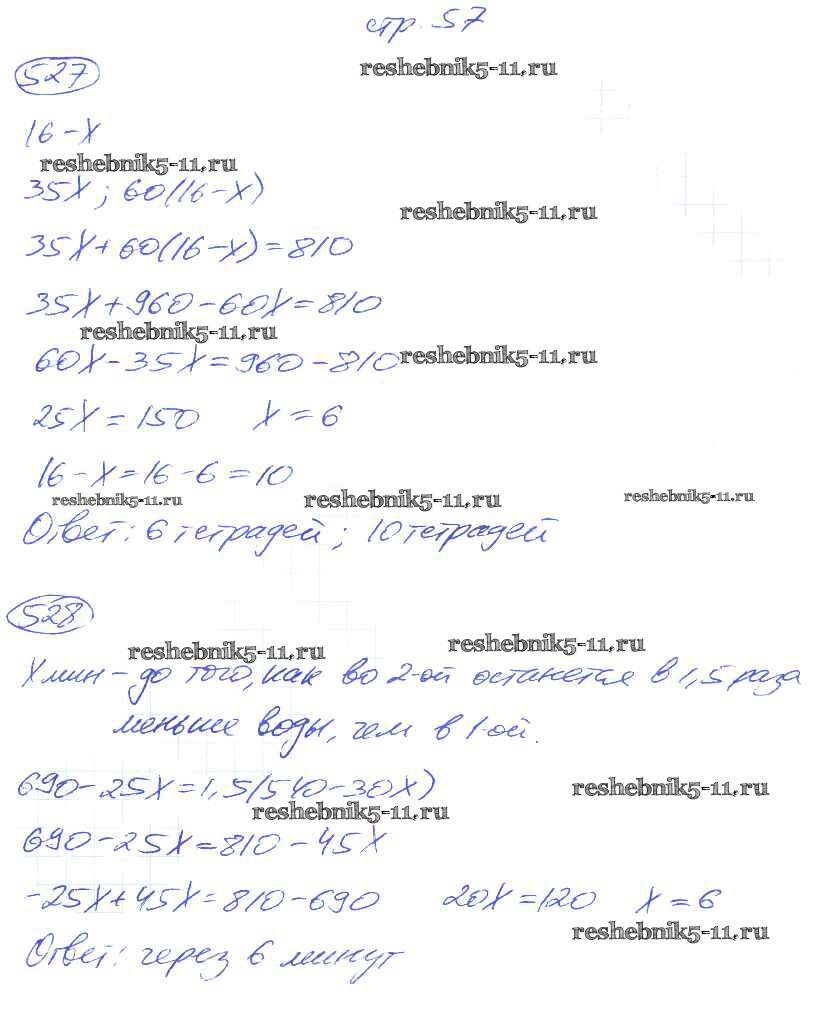 стр. 57
527
reshebnik5-11.ru
16 - x
reshebnik5-11.ru
35x ; 60(16-x)
reshebnik5-11.ru
35x + 60(16-x) = 810
35x + 960 - 60x = 810
reshebnik5-11.ru
60x - 35x = 960 - 810
reshebnik5-11.ru
25x = 150 x = 6
16 - x = 16 - 6 = 10
reshebnik5-11.ru reshebnik5-11.ru reshebnik5-11.ru
Ответ: 6 тетрадей ; 10 тетрадей
528
reshebnik5-11.ru reshebnik5-11.ru
X мин - до того, как во 2-ой останется в 1,5 раза
меньше воды, чем в 1-ой.
690 - 25x = 1,5(540 - 30x)
reshebnik5-11.ru
reshebnik5-11.ru
690 - 25x = 810 - 45x
-25x + 45x = 810 - 690 20x = 120 x = 6
reshebnik5-11.ru
Ответ: через 6 минут